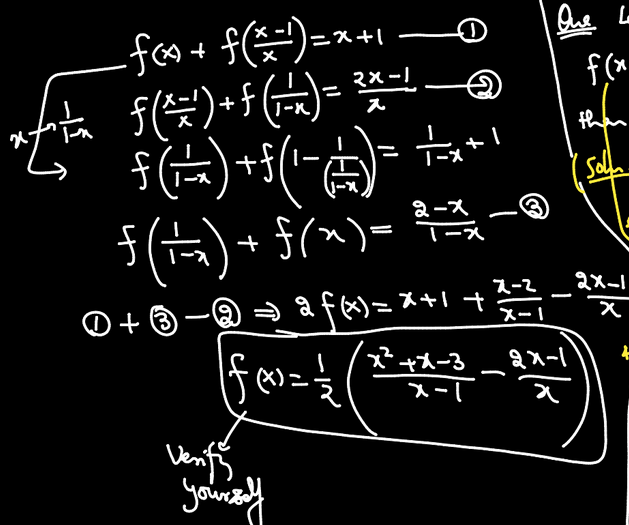 f(x) + f((x-1)/x) = x+1 — ①
f((x-1)/x) + f(1/(1-x)) = (2x-1)/x — ②
x → 1/(1-x)
f(1/(1-x)) + f(1 - 1/(1/(1-x))) = 1/(1-x) + 1
f(1/(1-x)) + f(x) = (2-x)/(1-x) — ③
① + ③ - ② ⇒ 2f(x) = x+1 + (x-2)/(x-1) - (2x-1)/x
f(x) = 1/2 ((x²+x-3)/(x-1) - (2x-1)/x)
Verify
yourself
Que
f(x
then
(Soln